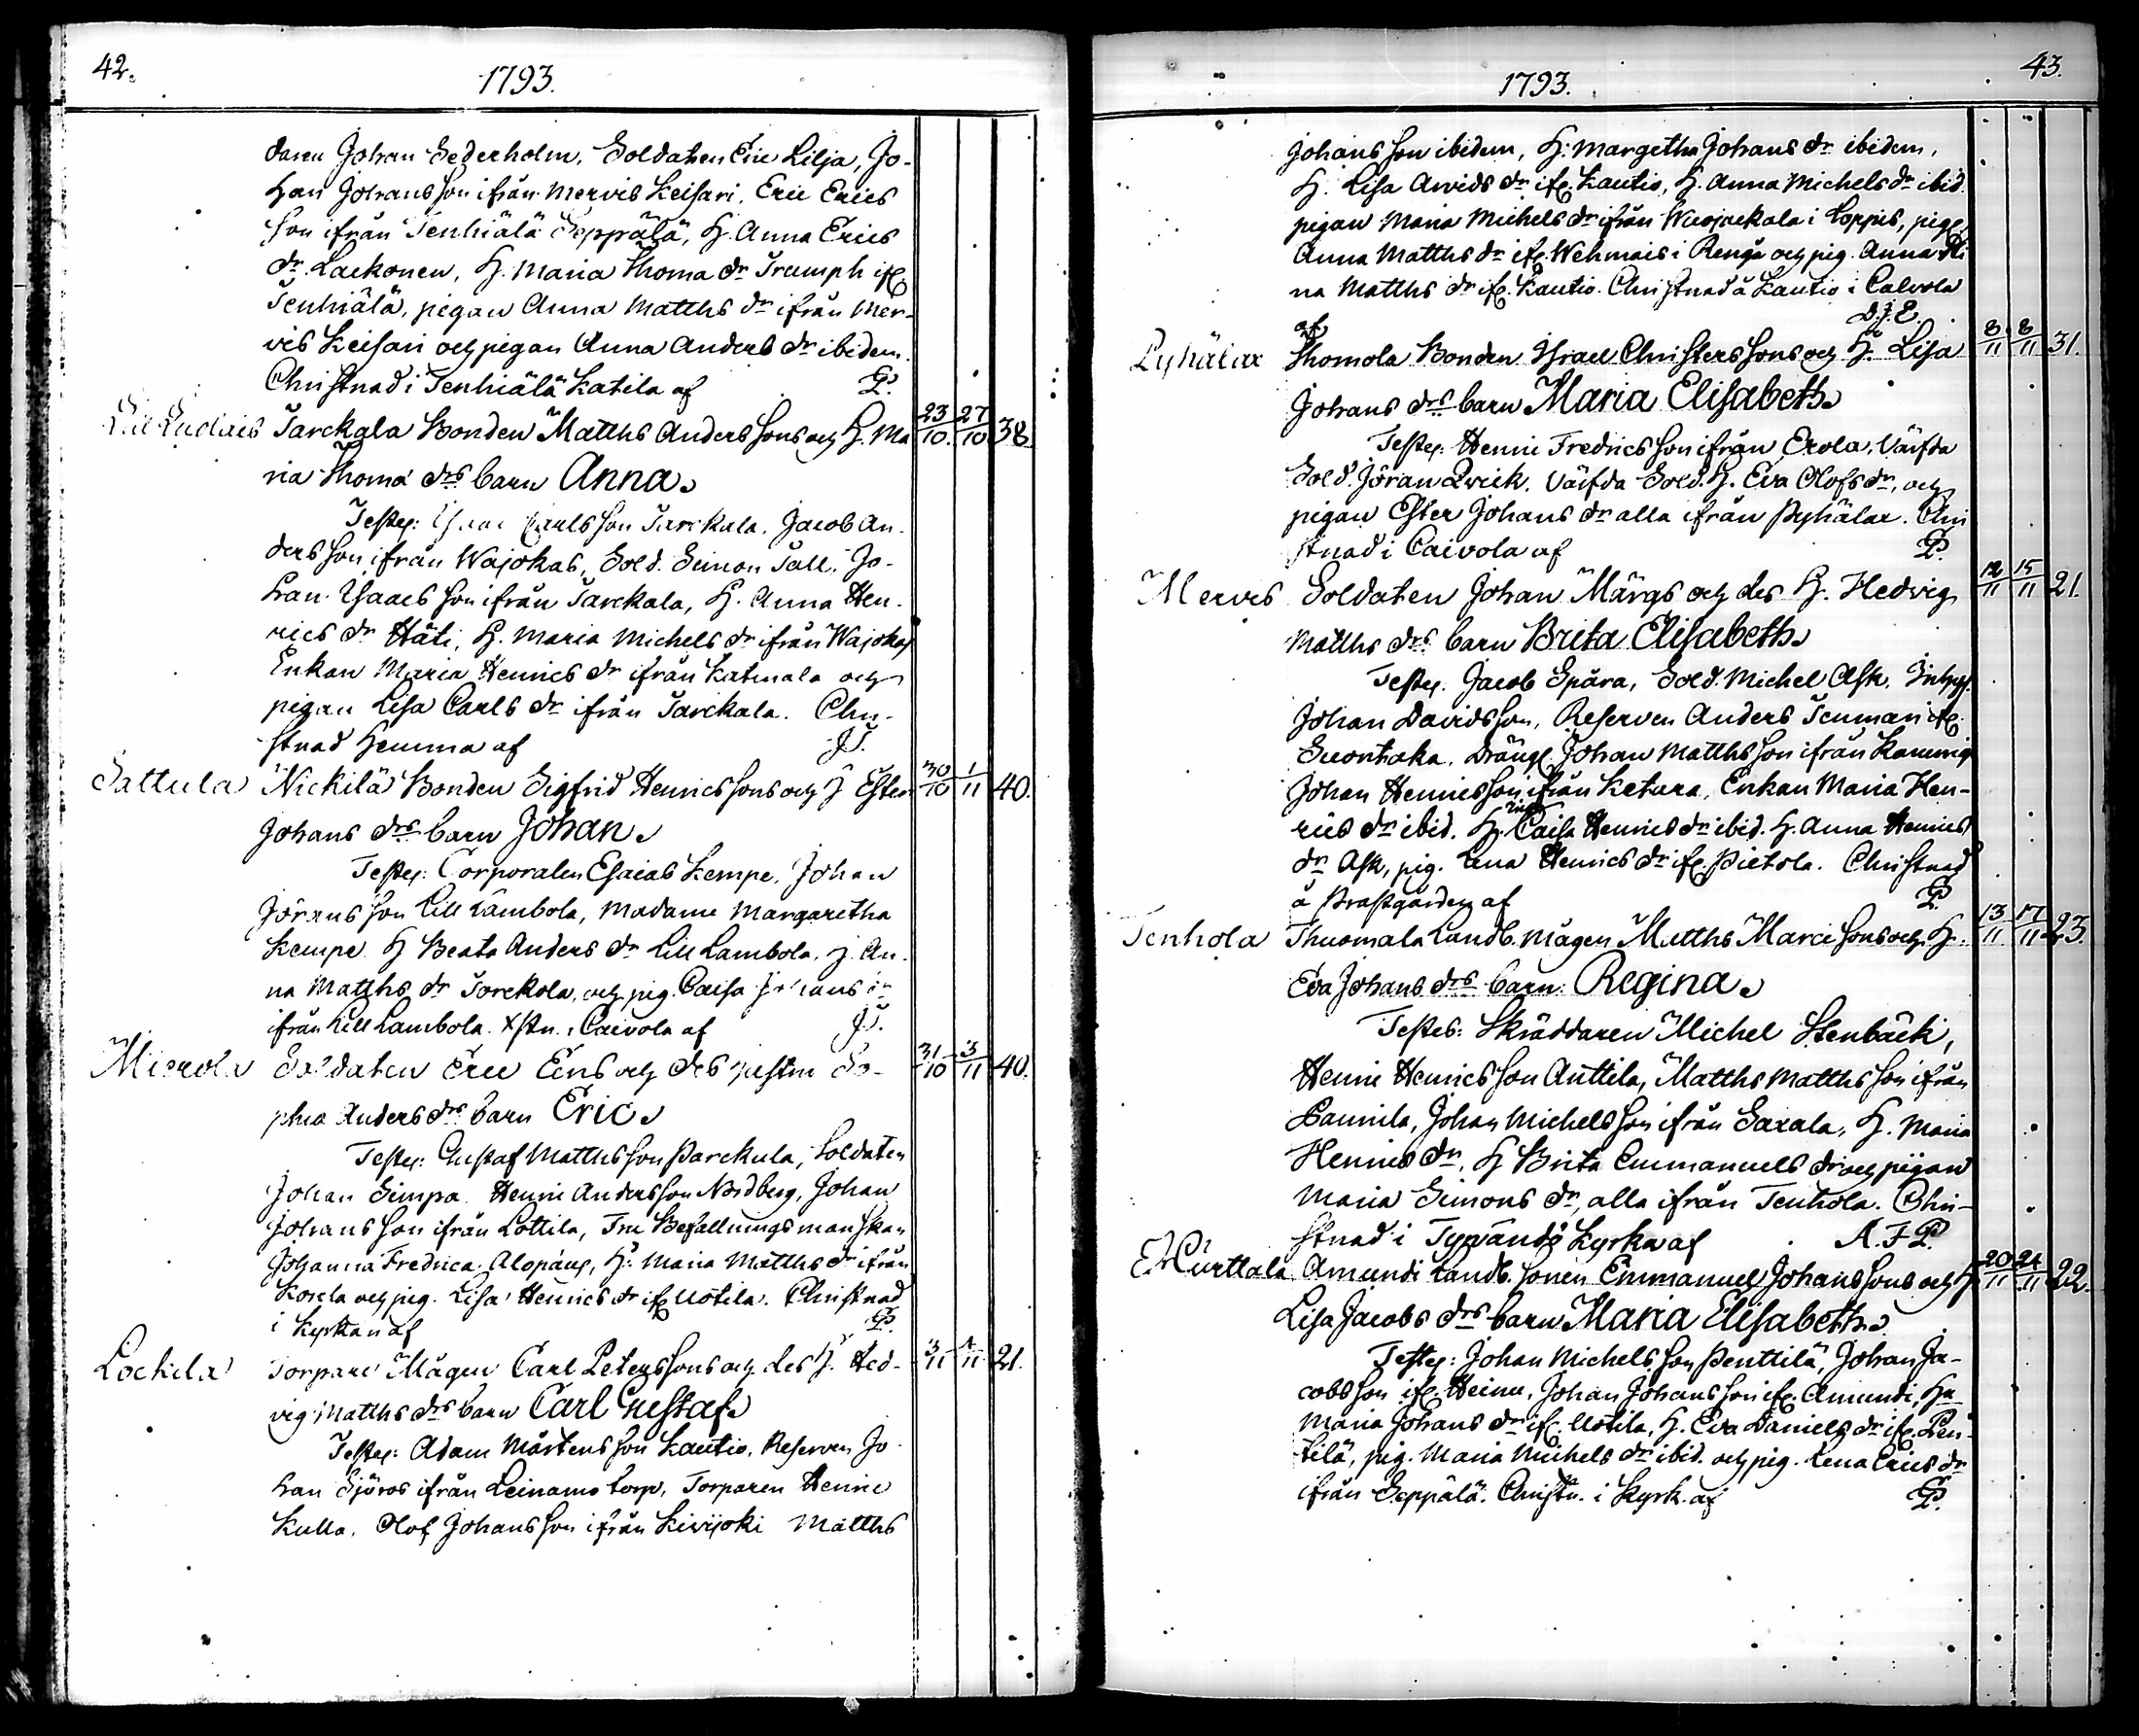 42.
1793.
daren Johan Sederholm, Soldaten Eric Lilja, Jo-
han Johansson ifrån Mervis Keisari, Eric Erics
son ifrån Tenhiälä Seppälä, H. Anna Erics
dr. Lackonen, H. Maria Thoma dr Trumph ifr.
Tenhiälä, pigan Anna Matths dr ifrån Mer-
vis Keisari och pigan Anna Anders dr ibidem.
Christnad i Tenhiälä Katila af P.
Tarckala Bonden Matths Anderssons och H. Ma 23/10. 27/10 38.
ria Thomæ drs barn Anna.
Testes: Isaac Carlsson Tarckala, Jacob An-
dersson ifrån Wajokas, Sold. Simon Tall, Jo-
han Isaacsson ifrån Tarckala, H. Anna Hen-
rics dr Häti, H. Maria Michels dr ifrån Wajokas
Enkan Maria Henrics dr ifrån Katinala och
pigan Lisa Carls dr ifrån Tarckala. Chri-
stnad hemma af J.T.
Sattula Nickilä Bonden Sigfrid Henricssons och H Ester 30/10 1/11 40.
Johans drs barn Johan.
Testes: Corporalen Esaias Kempe, Johan
Jöransson Lill Lambola, Madame Margaretha
Kempe, H Beata Anders dr Lill Lambola, H. An-
na Matths dr Torckola, och pig. Caisa Johans dr
ifrån Lill Lambola. Xstn. i Caivola af J.T.
Mierola Soldaten Eric Eens och des hustru So- 31/10 3/11 40.
phia Anders drs barn Eric.
Testes: Gustaf Matthsson Parckula, Soldaten
Johan Simpa, Henric Andersson Nordberg, Johan
Johansson ifrån Lottila, Fru Befallningsmanskan
Johanna Fredrica Alopæus, H. Maria Matths dr ifrån
Korela och pig. Lisa Henrics dr ifr. Uotila. Christnad
i Kyrkan af P.
Lockila Torpare Mågen Carl Peterssons och des H. Hed- 3/11 /11 21.
vig Matths drs barn Carl Gustaf.
Testes: Adam Mårtensson Kautio, Reserven Jo-
han Sjöros ifrån Leinamo torp, Torparen Henric
Kulla, Olof Johansson ifrån Kivijoki Matths
43.
1793.
Johansson ibidem, H. Margetha Johans dr ibidem,
H. Lisa Arvids dr ifr. Kautio, H. Anna Michels dr ibid.
pigan Maria Michels dr ifrån i Loppis, pig.
Anna Matths dr ifr. Wehmais i Rengå och pig. Anna Sti
na Matths dr ifr. Kautio. Christnad å Kautio i Calvola
af D.J.E.
Pyhälax Thomola Bonden Israel Christerssons och H. Lisa 8/11 8/11 31.
Johans drs barn Maria Elisabeth.
Testes: Henric Fredricsson ifrån Erola, Värfda
Sold. Jöran Qvick, Värfda Sold. H. Eva Olofs dr, och
pigan Ester Johans dr alla ifrån Pyhälax. Chri
stnad i Caivola af P.
Mervis Soldaten Johan Märgs och des H. Hedvig 12/11 15/11 21.
Matths drs barn Brita Elisabeth.
Testes. Jacob Spåra, Sold. Michel Ask,
Johan Davidsson, Reserven Anders Tenman ifr.
Suontaka, Dräng. Johan Matthsson ifrån
Johan Henricsson ifrån Ketara, Enkan Maria Hen-
rics dr ibid. H. Caisa Henrics dr ibid. H. Anna Henrics
dr Ask, pig. Lena Henrics dr ifr. Pietola. Christnad
å Prastgården af P.
Tenhola Thuomala Landb. Mågen Matths Marcissons och H. 13/11 17/11 23.
Eva Johans drs barn Regina.
Testes: Skräddaren Michel Stenbäck,
Henric Henricsson Anttila, Matths Matthsson ifrån
Pannila, Johan Michelsson ifrån Saxala, H. Maria
Henrics dr, H Brita Emmanuels dr och pigan
Maria Simons dr, alla ifrån Tenhola. Chri-
stnad i Tyrvändö Kyrka af A. F P.
E. Hurttala Amundi Landb. sonen Emmanuel Johanssons och H 20/11 24/11 22.
Lisa Jacobs drs barn Maria Elisabeth.
Testes: Johan Michelsson Penttilä, Johan Ja-
cobsson ifr. Heinu, Johan Johansson ifr. Amundi, Hu
Maria Johans dr ifr. Uotila, H. Eva Daniels dr ifr. Pen-
tilä, pig. Maria Michels dr ibid. och pig. Lena Erics dr
ifrån Seppälä. Christn. i Kyrk. af P.